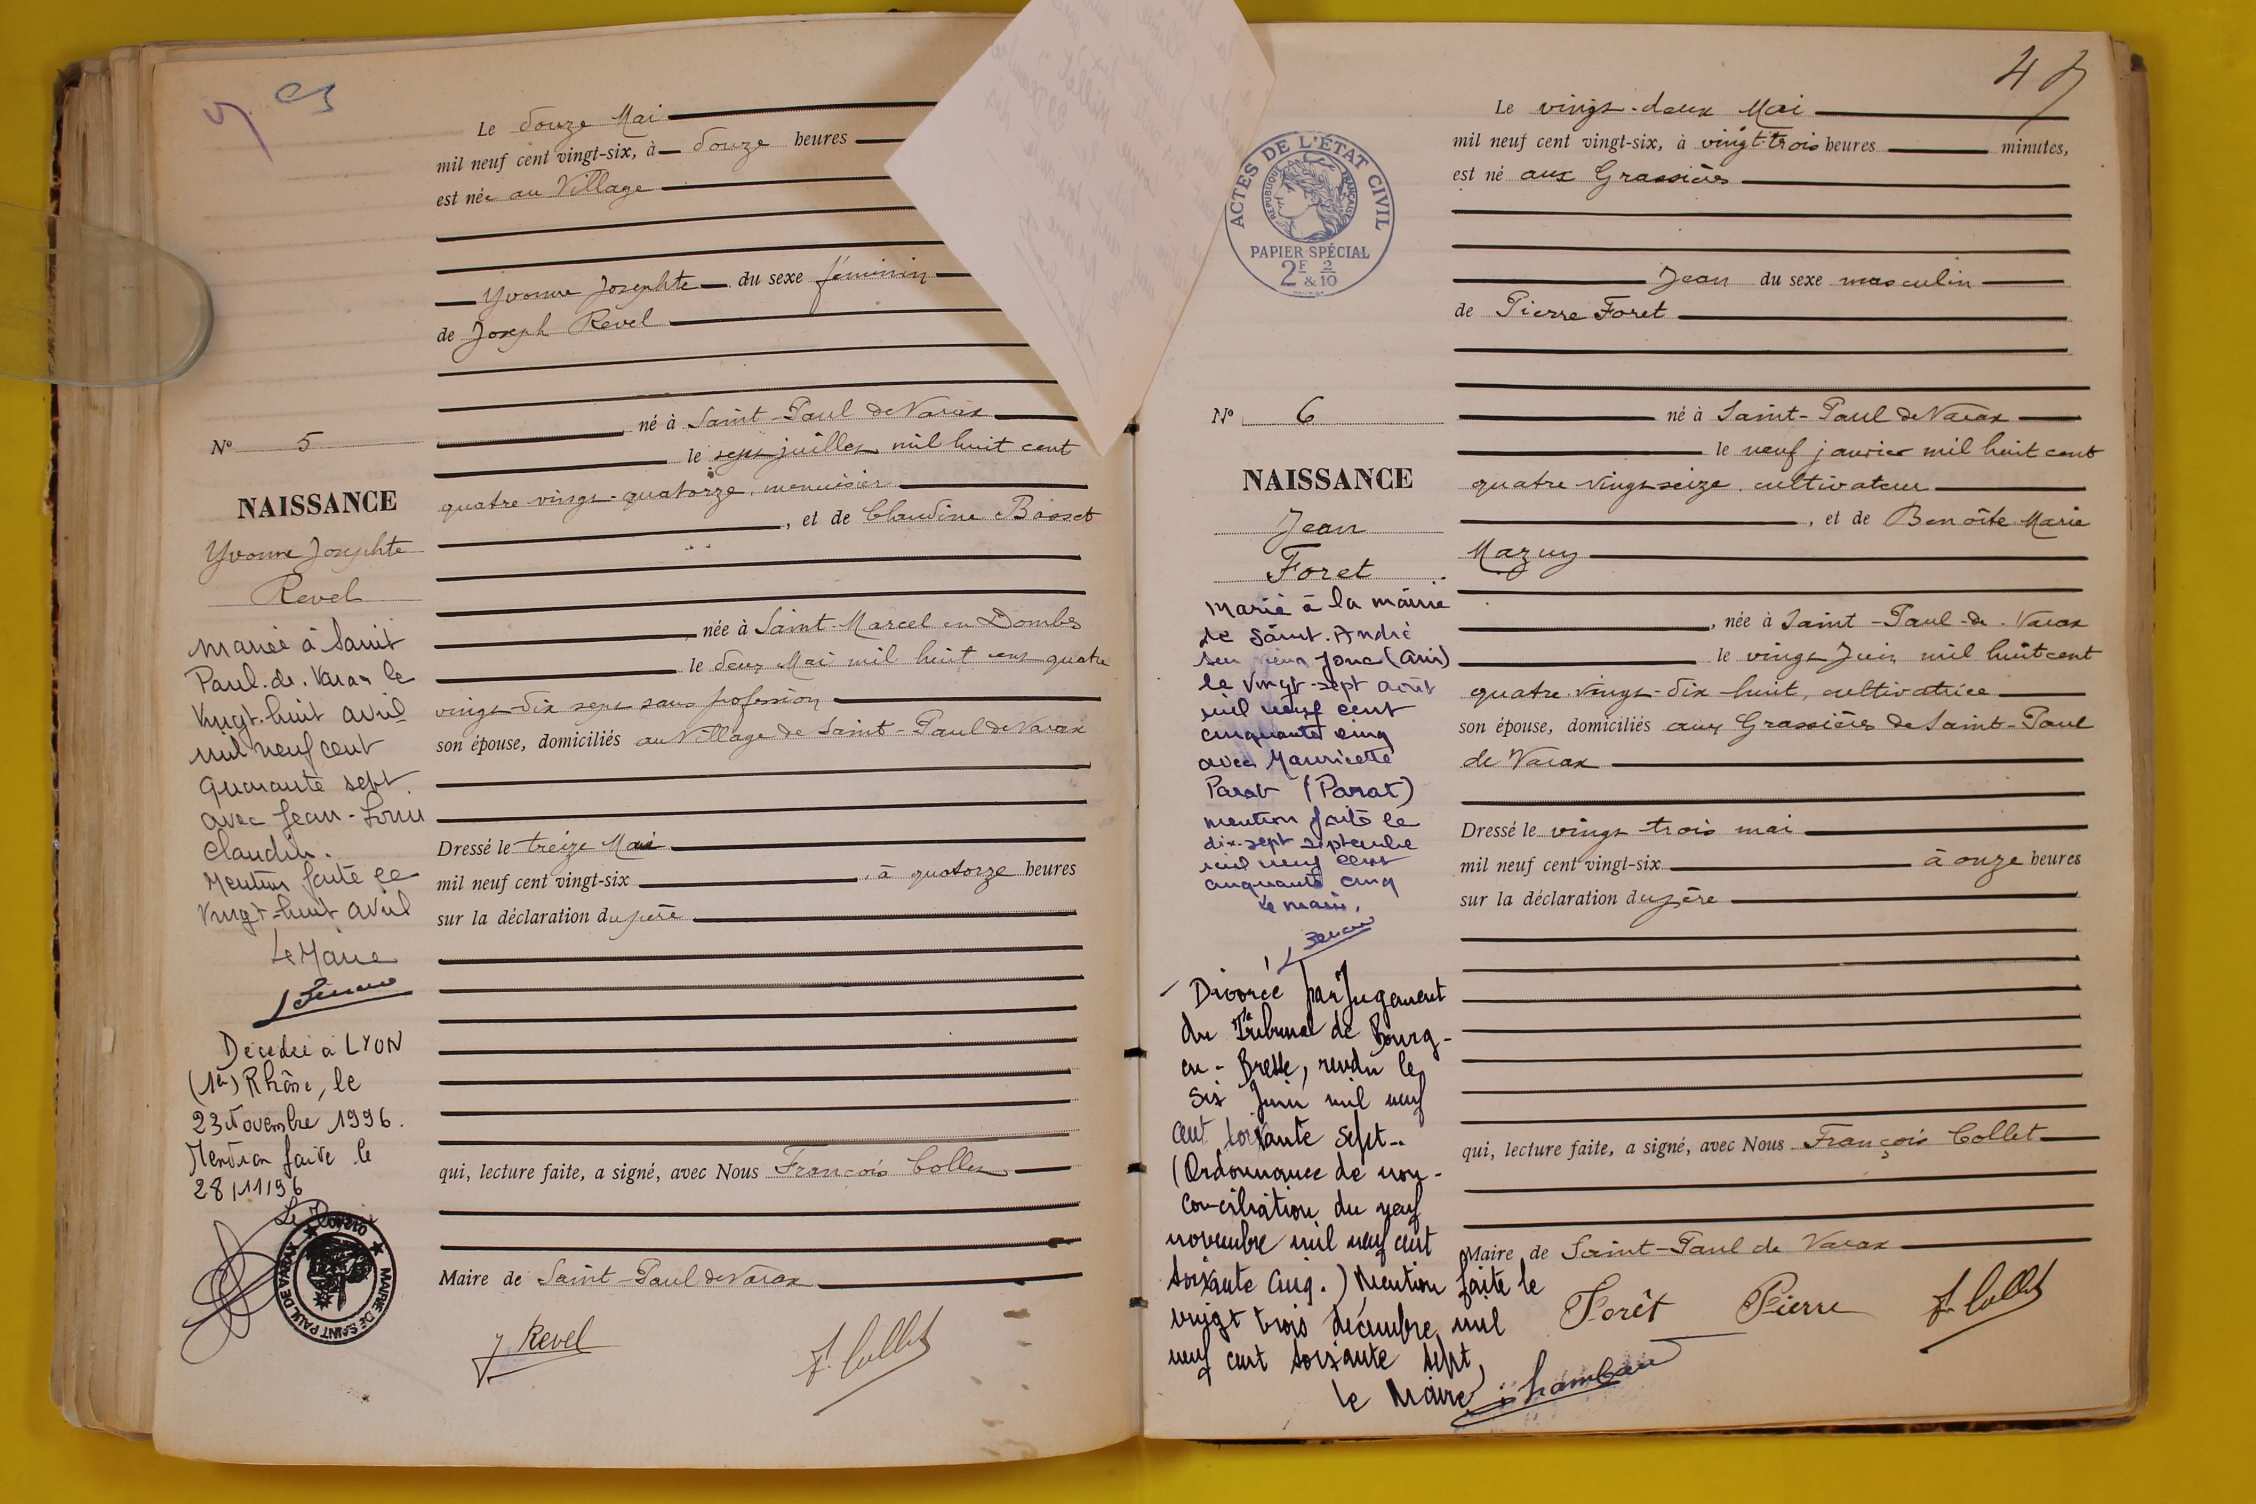 Le douze Mai
mil neuf cent vingt-six, à douze heures
est née au Village
Yvonne Josephte du sexe féminin
de Joseph Revel
né à Saint-Paul de Varax
le sept juillet mil huit cent
quatre vingt-quatorze, menuisier
, et de Claudine Bosset
née à Saint-Marcel en Dombes
le deux Mai mil huit cent quatre
vingt-dix sept sans profession
son épouse, domiciliés au Village de Saint-Paul de Varax
Dressé le treize Mai
mil neuf cent vingt-six, à quatorze heures
sur la déclaration du père
qui, lecture faite, a signé, avec Nous François Collet
Maire de Saint-Paul de Varax
J Revel
F. Collet
N° 5
NAISSANCE
Yvonne Josephte
Revel
Mariée à Saint
Paul-de-Varax le
Vingt-huit avril
mil neuf cent
quarante sept
avec Jean-Louis
Claudin.
Mention faite le
Vingt-huit avril
Le Maire
Décédée à LYON
(1er) Rhône, le
23 Novembre 1996.
Mention faite le
28/11/96
Le Maire
MAIRIE DE SAINT PAUL DE VARAX
47
Le vingt-deux Mai
mil neuf cent vingt-six, à vingt-trois heures minutes,
est né aux Grassières
Jean du sexe masculin
de Pierre Foret
né à Saint-Paul de Varax
le neuf janvier mil huit cent
quatre vingt seize, cultivateur
, et de Benoîte Marie
Mazuy
, née à Saint-Paul-de-Varax
le vingt Juin mil huit cent
quatre-vingt-dix-huit, cultivatrice
son épouse, domiciliés aux Grassières de Saint-Paul
de Varax
Dressé le vingt trois mai
mil neuf cent vingt-six à onze heures
sur la déclaration du père
qui, lecture faite, a signé, avec Nous François Collet
Maire de Saint-Paul de Varax
Forêt Pierre F. Collet
ACTES DE L'ÉTAT CIVIL
RÉPUBLIQUE FRANÇAISE
PAPIER SPÉCIAL
2F & 2/10
N° 6
NAISSANCE
Jean
Foret
Marié à la mairie
de Saint-André
sur vieux Jonc (Ain)
le Vingt-sept août
mil neuf cent
cinquante cinq
avec Mauricette
Parat (Parat)
mention faite le
dix-sept septembre
mil neuf cent
cinquante cinq
Le maire,
Divorcé par Jugement
du Tribunal de Bourg-
en-Bresse, rendu le
six Juin mil neuf
cent soixante sept.
(Ordonnance de non-
conciliation du neuf
novembre mil neuf cent
soixante cinq.) Mention faite le
vingt trois décembre mil
neuf cent soixante sept,
le Maire